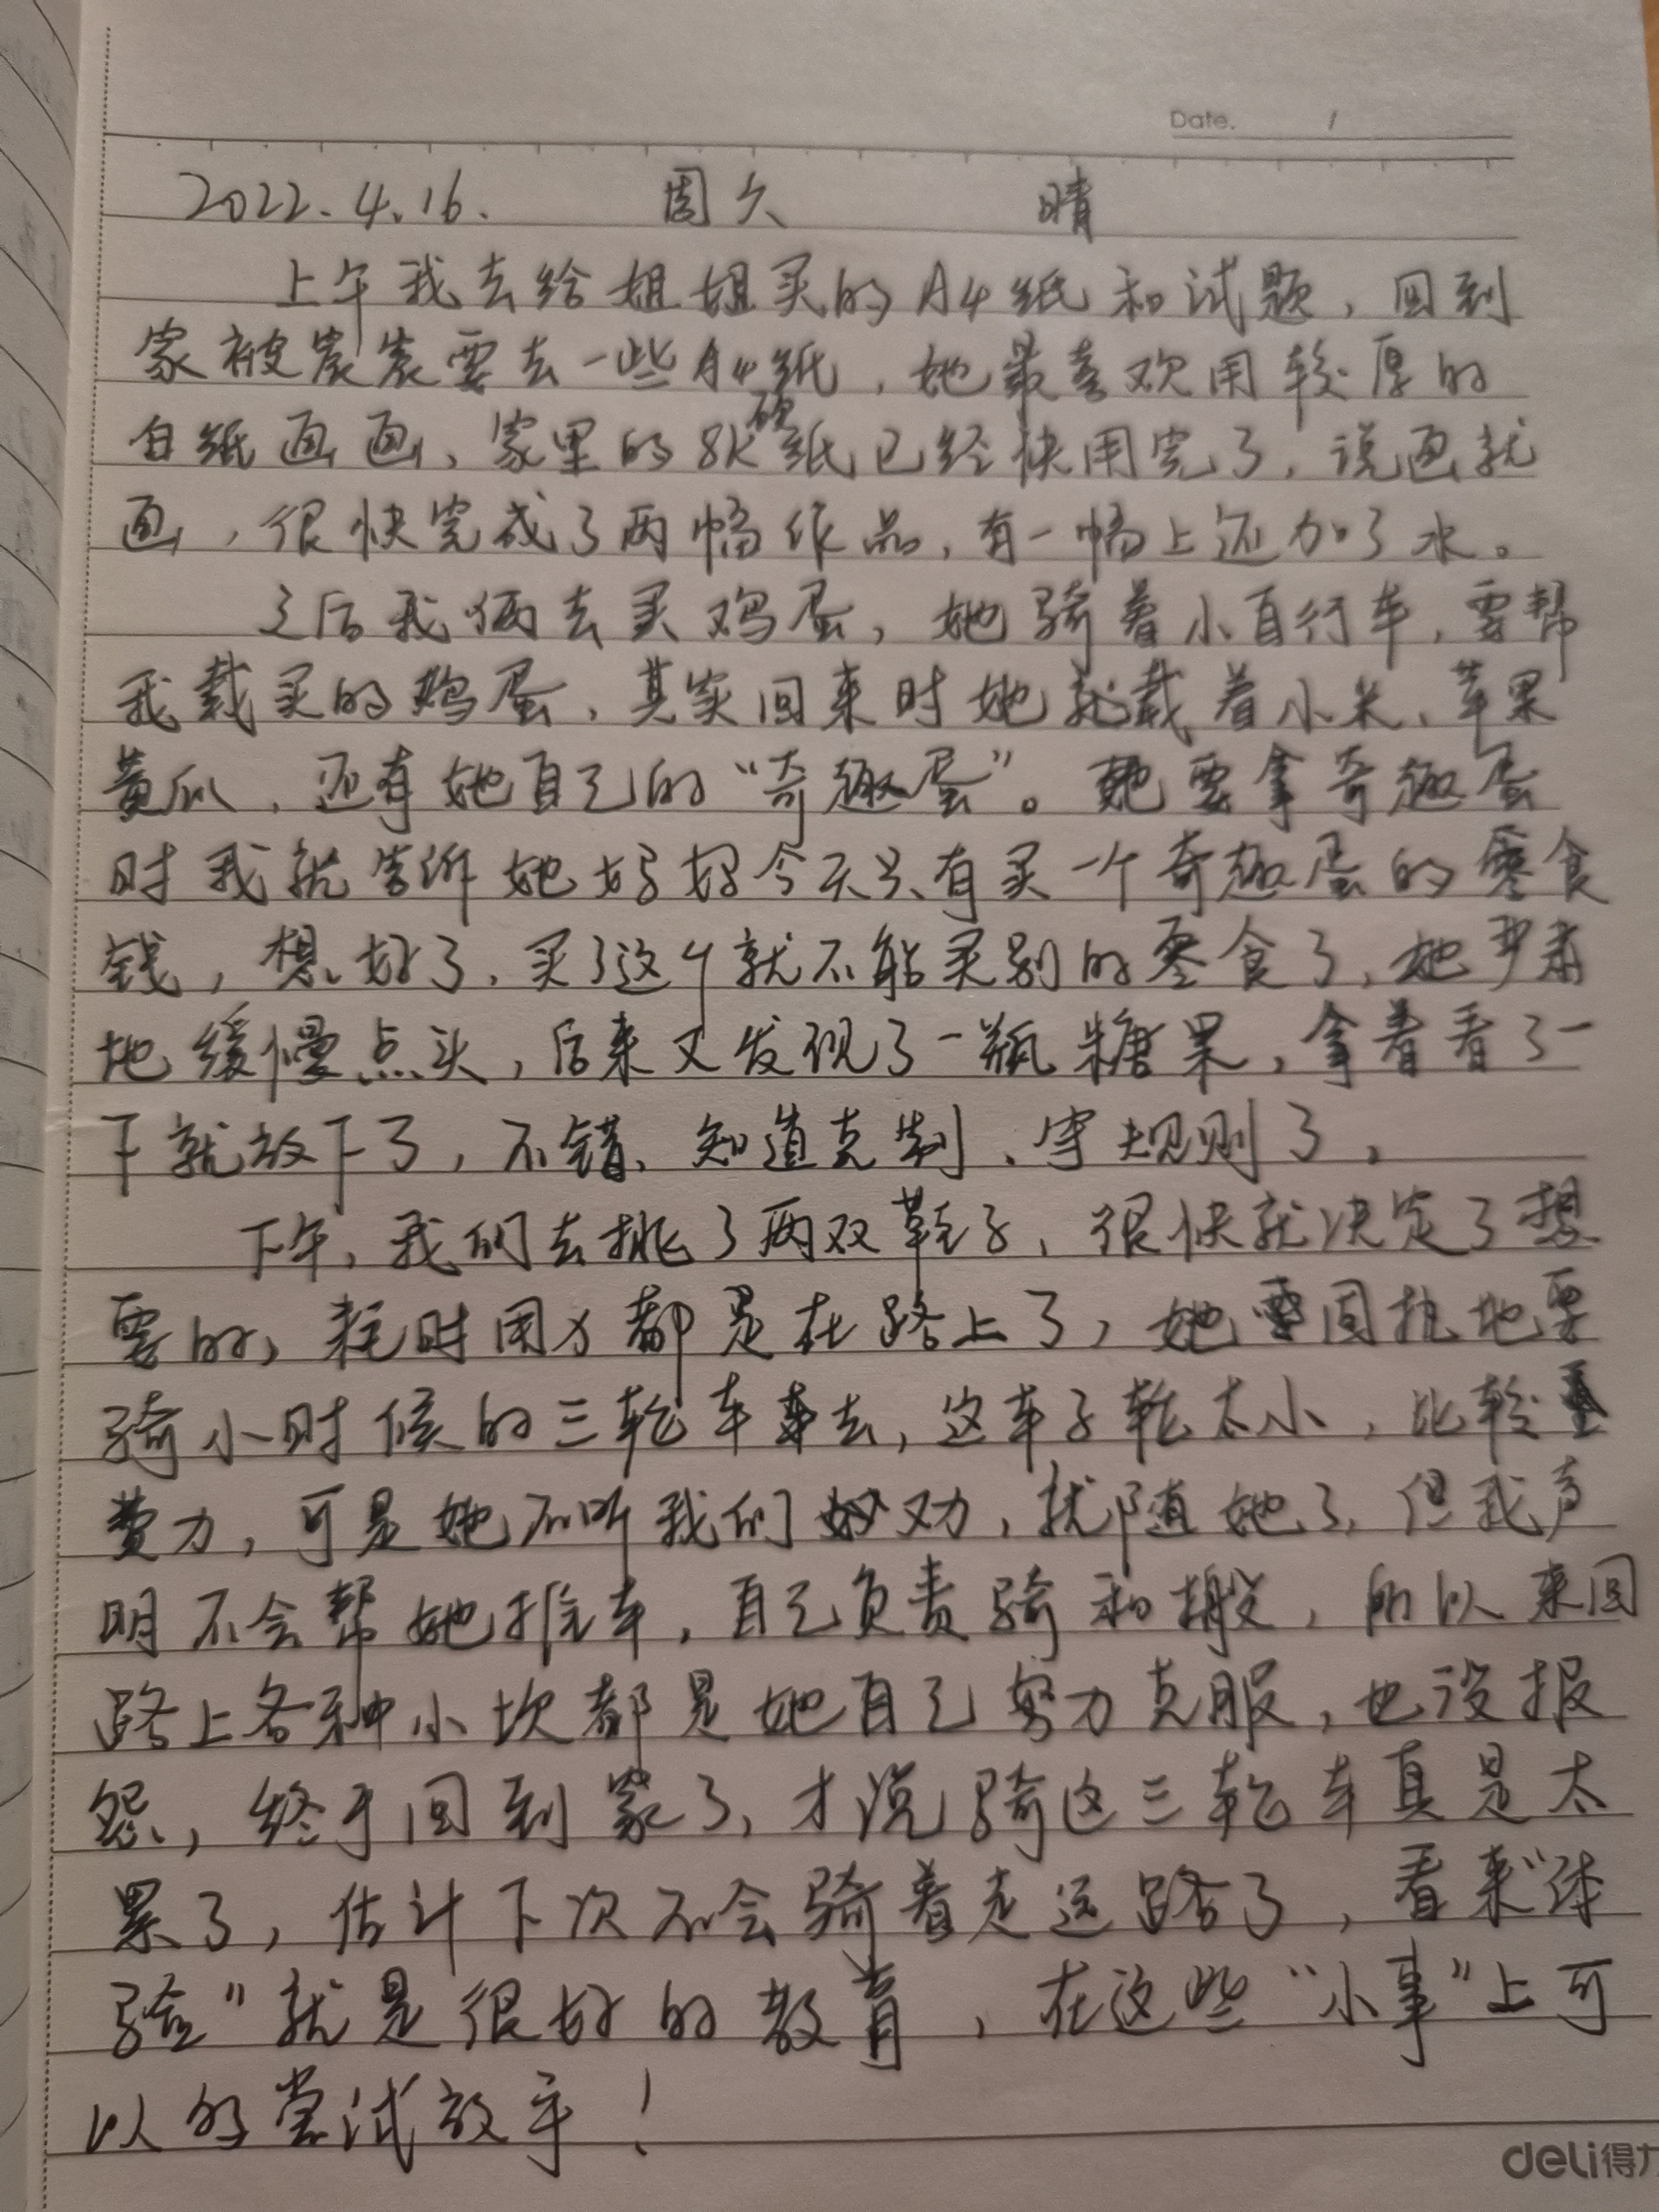 Date. /
2022.4.16. 周六 晴
上午我去给姐姐买的A4纸和试题，回到
家被宸宸要去一些A4纸，她最喜欢用较厚的
白纸画画、家里的8K硬纸已经快用完了，说画就
画，很快完成了两幅作品，有一幅上还加了水。
之后我俩去买鸡蛋，她骑着小自行车，要帮
我载买的鸡蛋、其实回来时她就载着小米、苹果
黄瓜，还有她自己的“奇趣蛋”。她要拿奇趣蛋
时我就告诉她妈妈今天只有买一个奇趣蛋的零食
钱，想好了，买了这个就不能买别的零食了，她严肃
地缓慢点头，后来又发现了一瓶糖果，拿着看了一
下就放下了，不错、知道克制、守规则了。
下午，我们去挑了两双鞋子，很快就决定了想
要的，耗时用力都是在路上了，她固执地要
骑小时候的三轮车去，这车子轮太小，比较
费力，可是她不听我们劝，就随她了，但我声
明不会帮她推车，自己负责骑和搬，所以来回
路上各种小坎都是她自己努力克服，也没报
怨，终于回到家了，才说骑这三轮车真是太
累了，估计下次不会骑着走远路了，看来“体
验”就是很好的教育，在这些“小事”上可
以多尝试放手！
deli得力